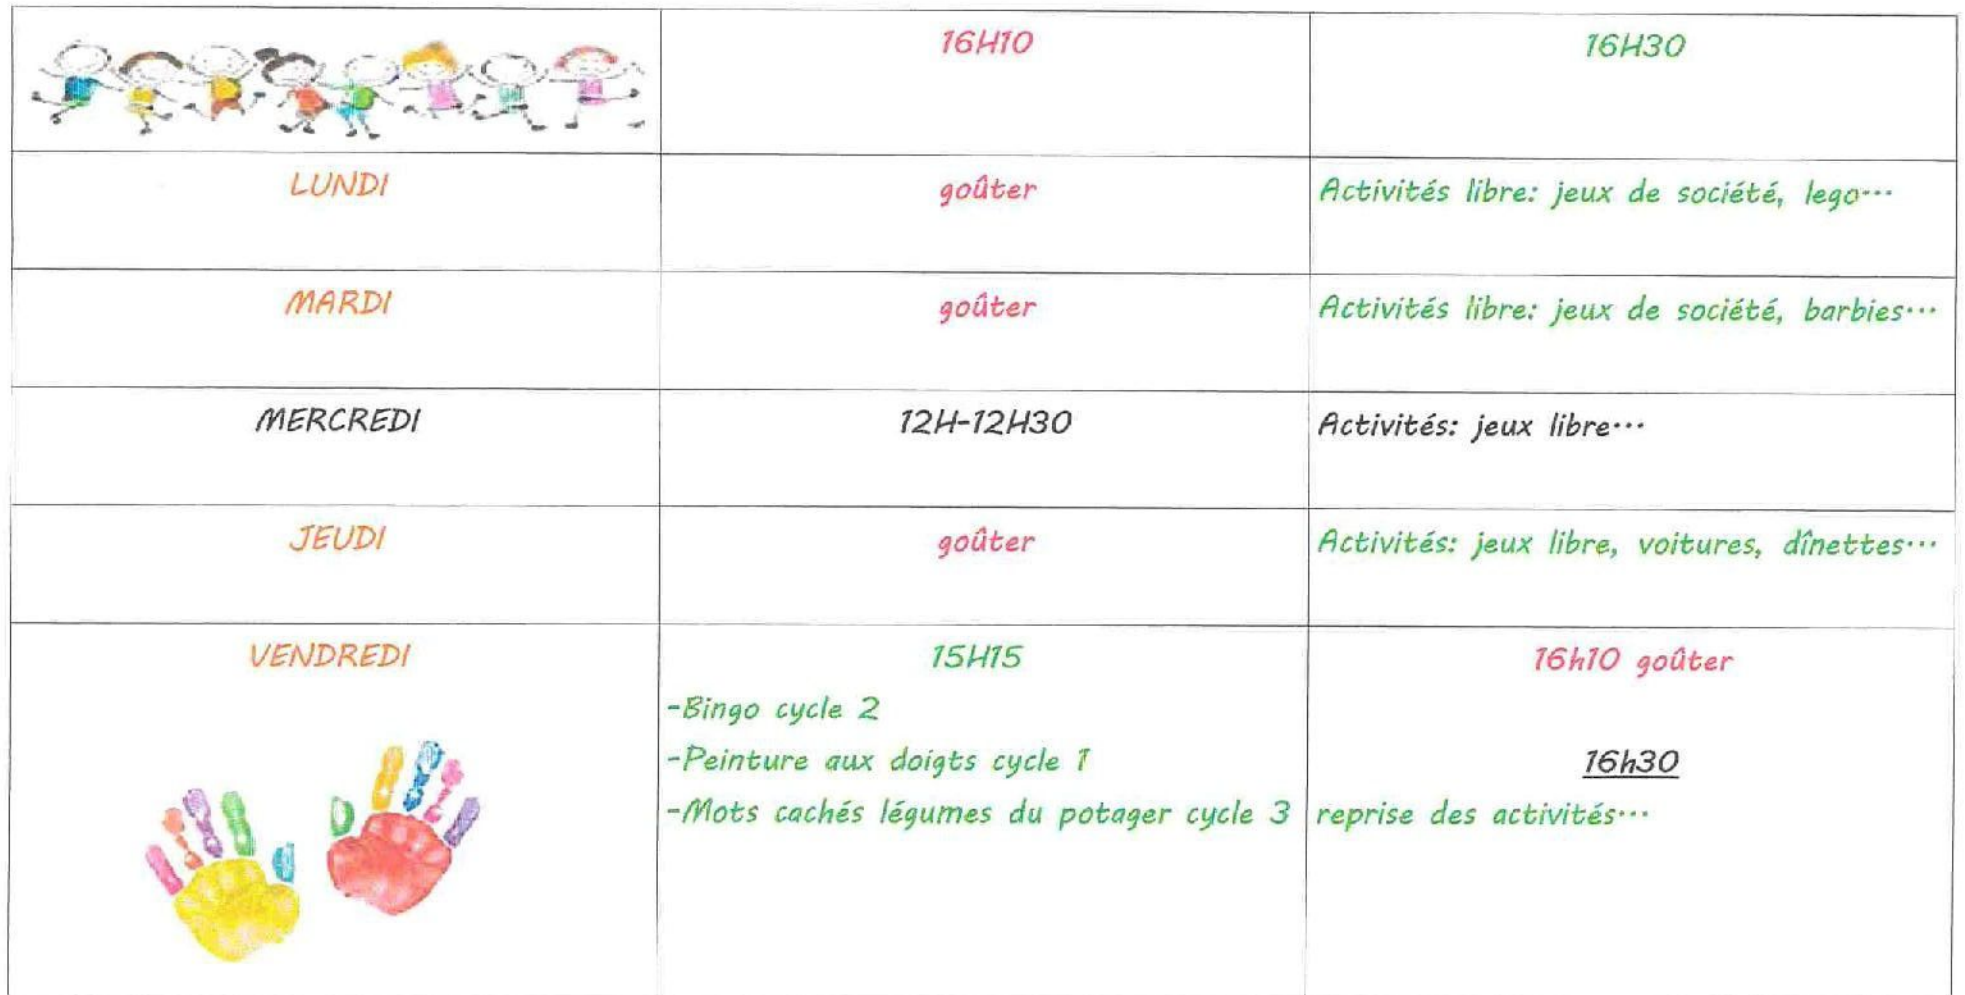 16H10
16H30
LUNDI
goûter
Activités libre: jeux de société, lego...
MARDI
goûter
Activités libre: jeux de société, barbies...
MERCREDI
12H-12H30
Activités: jeux libre...
JEUDI
goûter
Activités: jeux libre, voitures, dînettes...
VENDREDI
15H15
-Bingo cycle 2
-Peinture aux doigts cycle 1
-Mots cachés légumes du potager cycle 3
16h10 goûter
16h30
reprise des activités...